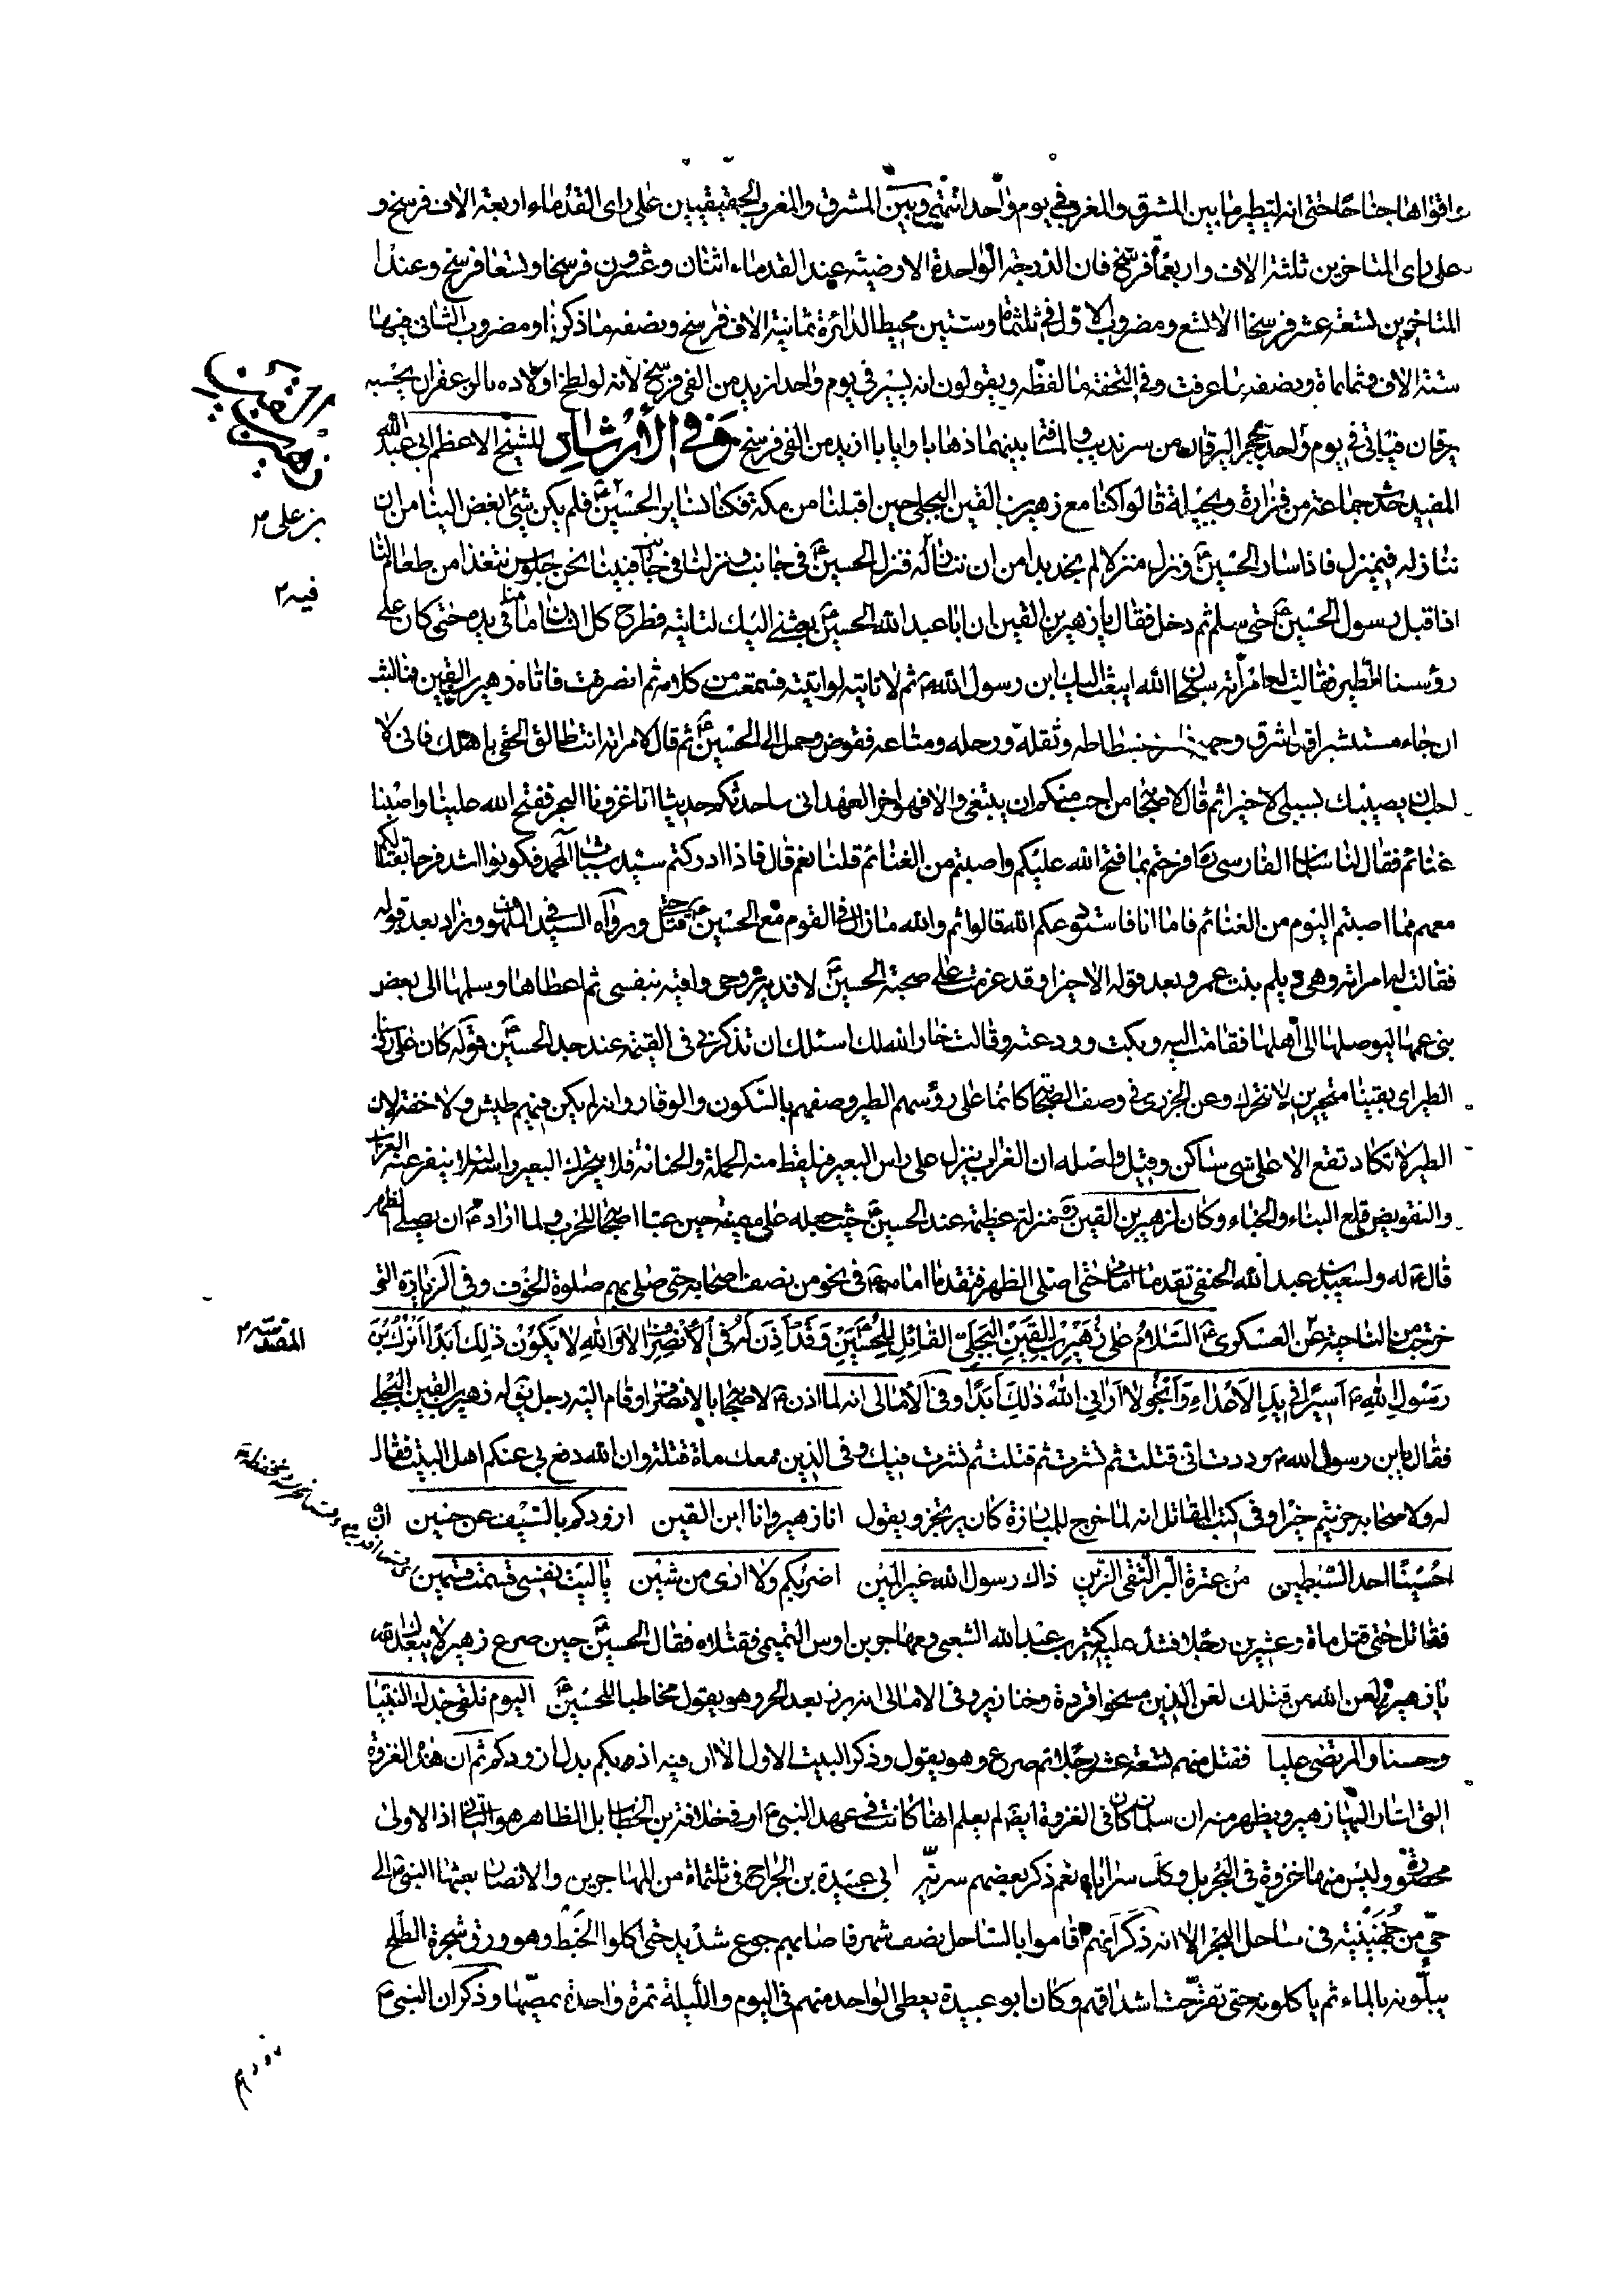 واقواها جناحا حتى انه ليطير ما بين المشرق والمغرب في يوم واحد انتهى وبين المشرق والمغرب الحقيقيين على راى القدماء اربعة الاف فرسخ و
على راى المتاخرين ثلثة الاف واربعمأة فرسخ فان الدرجة الواحدة الارضية عند القدماء اثنان وعشرون فرسخا وتسعا فرسخ وعند
المتاخرين تسعة عشر فرسخا الا تسع ومضروب الاول في ثلثمأة وستين محيط الدائرة ثمانية الاف فرسخ ونصفه ما ذكرنا ومضروب الثاني فيها
ستة الاف وثمانمأة ونصفه ما عرفت وفي التحفة ما لفظه ويقولون انه يسير في يوم واحد ازيد من الفي فرسخ لانه لو لطخ اولاده بالزعفران يحسبه
يرقان فيأتي في يوم واحد بحجر اليرقان من سرنديب والمسافة بينهما ذهابا وايابا ازيد من الفي فرسخ وَفي الأرْشادِ للشيخ الاعظم ابي عبد الله
زهير بن القين
المفيد حدث جماعة من فزارة وبجيلة قالوا كنا مع زهير بن القين البجلي حين اقبلنا من مكة فكنا نساير الحسين ع فلم يكن شئ ابغض الينا من ان
بن علي ٢
ننازله في منزل فاذا سار الحسين ع ونزل منزلا لم نجد بدا من ان ننازله فنزل الحسين ع في جانب ونزلنا في جانب فبينا نحن جلوس نتغذا من طعام لنا
فيه ٢
اذ اقبل رسول الحسين ع حتى سلم ثم دخل فقال يا زهير بن القين ان ابا عبد الله الحسين ع بعثني اليك لتاتيه فطرح كل انسان منا ما في يده حتى كان على
رؤسنا الطير فقالت له امرأته سبحان الله ايبعث اليك ابن رسول الله ص ثم لا تاتيه لو اتيته فسمعت من كلامه ثم انصرفت فاتاه زهير بن القين فما لبث
ان جاء مستبشرا قد اشرق وجهه فامر بفسطاطه وثقله ورحله ومتاعه فقوض وحمل الى الحسين ع ثم قال لامراته انت طالق الحقي باهلك فاني لا
احب ان يصيبك بسببي الا خيرا ثم قال لاصحابه من احب منكم ان يتبعني والا فهو اخر العهد اني ساحدثكم حديثا انا غزونا البحر ففتح الله علينا واصبنا
غنائم فقال لنا سلمان الفارسي ره افرحتم بما فتح الله عليكم واصبتم من الغنائم قلنا نعم قال فاذا ادركتم سيد شباب آل محمد فكونوا اشد فرحا بقتالكم
معهم مما اصبتم اليوم من الغنائم فاما انا فاستودعكم الله قالوا ثم والله ما زال في القوم مع الحسين ع حتى قتل ورواه السيد في الملهوف وزاد بعد قوله
فقالت له امراته وهي ديلم بنت عمرو وبعد قوله الا خيرا وقد عزمت على صحبة الحسين ع لافديه بروحي واقيه بنفسي ثم اعطاها وسلمها الى بعض
بني عمها ليوصلها الى اهلها فقامت اليه وبكت وودعته وقالت خار الله لك اسئلك ان تذكرني في القيمة عند جد الحسين ع قوله كان على رؤسنا
الطير اي بقينا متحيرين لا نتحرك وعن الجزري في وصف الصحابة كانما على رؤسهم الطير وصفهم بالسكون والوقار وانه لم يكن فيهم طيش ولا خفة لان
الطير لا تكاد تقع الا على شئ ساكن وقيل واصله ان الغراب ينزل على راس البعير فيلقط منه الحلمة والحنانة فلا يتحرك البعير راسه لئلا ينفر عنه الغراب
والتقويض قلع البناء والخباء وكان لزهير بن القين ره منزلة عظيمة عند الحسين ع حيث جعله على ميمنته حين عبا اصحابه للحرب ولما اراد ع ان يصلي الظهر
قال ع له ولسعيد بن عبد الله الحنفي تقدما امامي حتى اصلي الظهر فتقدما امامه ع في نحو من نصف اصحابه حتى صلى بهم صلوة الخوف وفي الزيارة التي
خرجت من الناحية عن العسكري ع السَّلامُ عَلى زُهَيْرِ بْنِ الْقَيْنِ الْبَجَلِيِّ القائِلِ لِلْحُسَيْنِ وَقَدْ اَذِنَ لَهُ فِي الْاِنْصِرافِ لا وَاللهِ لا يَكُونُ ذلِكَ اَبَدًا اَتْرُكُ بْنَ
المقدسة ٢
رَسُولِ اللهِ ص اَسيرًا في يَدِ الْاَعْداءِ وَاَنْجُو لا اَرانِيَ اللهُ ذلِكَ اَبَدًا وفي الأمالي انه لما اذن ع لاصحابه بالانصراف وقام اليه رجل يقال له زهير بن القين البجلي
فقال يا بن رسول الله ص وددت اني قتلت ثم نشرت ثم قتلت ثم نشرت فيك وفي الذين معك مأة قتلة وان الله دفع بي عنكم اهل البيت فقال
له ولاصحابه جزيتم خيرا وفي كتب المقاتل انه لما خرج للمبارزة كان يرتجز ويقول انا زهير وانا ابن القين اذودكم بالسيف عن حسين ان
حُسينًا احد السبطين من عترة البر التقي الزين ذاك رسول الله غير المين اضربكم ولا ارى من شين يا ليت نفسي قسمت قسمين
فقاتل حتى قتل مأة وعشرين رجلا فشد عليه كثير بن عبد الله الشعبي ومهاجر بن اوس التميمي فقتلاه فقال الحسين ع حين صرع زهير لا يبعدك الله
يا زهير ولعن الله من قتلك لعن الذين مسخوا قردة وخنازير وفي الامالي انه برز بعد الحر وهو يقول مخاطبا للحسين ع اليوم نلقى جدك النبيا
وحسنا والمرتضى عليا فقتل منهم تسعة عشر رجلا ثم صرع وهو يقول وذكر البيت الاول الا ان فيه اذبكم بدل اذودكم ثم ان هذه الغزوة
التي اشار اليها زهير ويظهر منه ان سلمان كان في الغزوة ايضا لم يعلم انها كانت في عهد النبي ص او في خلافة بن الخطاب بل الظاهر هو الثاني اذ الاولى
محصورة وليس منها غزوة في البحر بل وكك سراياه نعم ذكر بعضهم سريّة ابي عبيدة بن الجراح في ثلثمأة من المهاجرين والانصار بعثها النبي ص الى
حيّ من جُهَيْنَة في ساحل البحر الا انه ذكر انهم اقاموا بالساحل نصف شهر فاصابهم جوع شديد حتى اكلوا الخَبَط وهو ورق شجرة الطلح
يبلّونه بالماء ثم ياكلونه حتى تقرّحت اشداقهم وكان ابو عبيدة يعطي الواحد منهم في اليوم والليلة تمرة واحدة يمصّها وذكر ان النبي ص